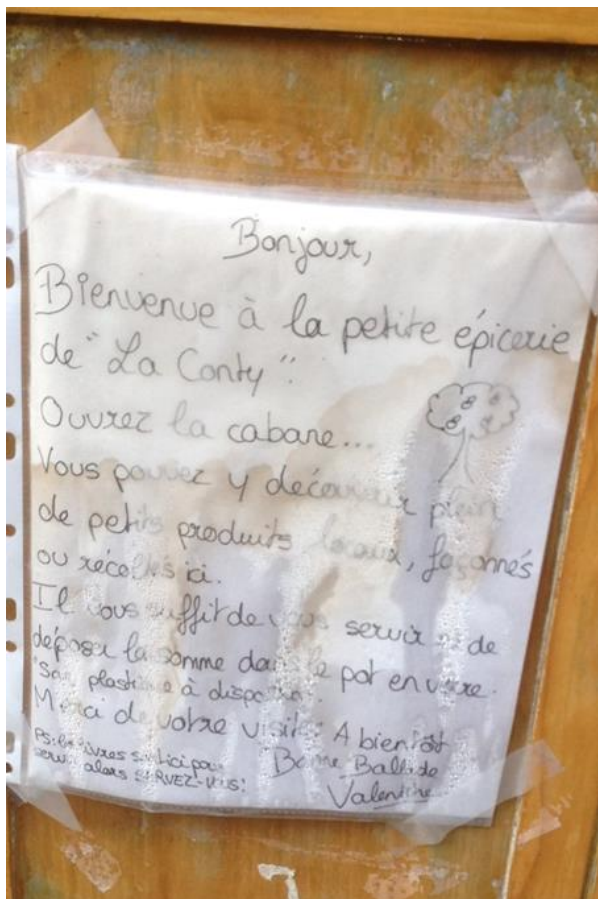 Bonjour,
Bienvenue à la petite épicerie
de "La Conty".
Ouvrez la cabane...
Vous pouvez y découvrir plein
de petits produits locaux, façonnés
ou récoltés ici.
Il vous suffit de vous servir et de
déposer la somme dans le pot en verre.
"Sac plastique à disposition
Merci de votre visite. A bientôt
PS: les livres sont ici pour
servir alors SERVEZ-VOUS!
Bonne Ballade
Valentine